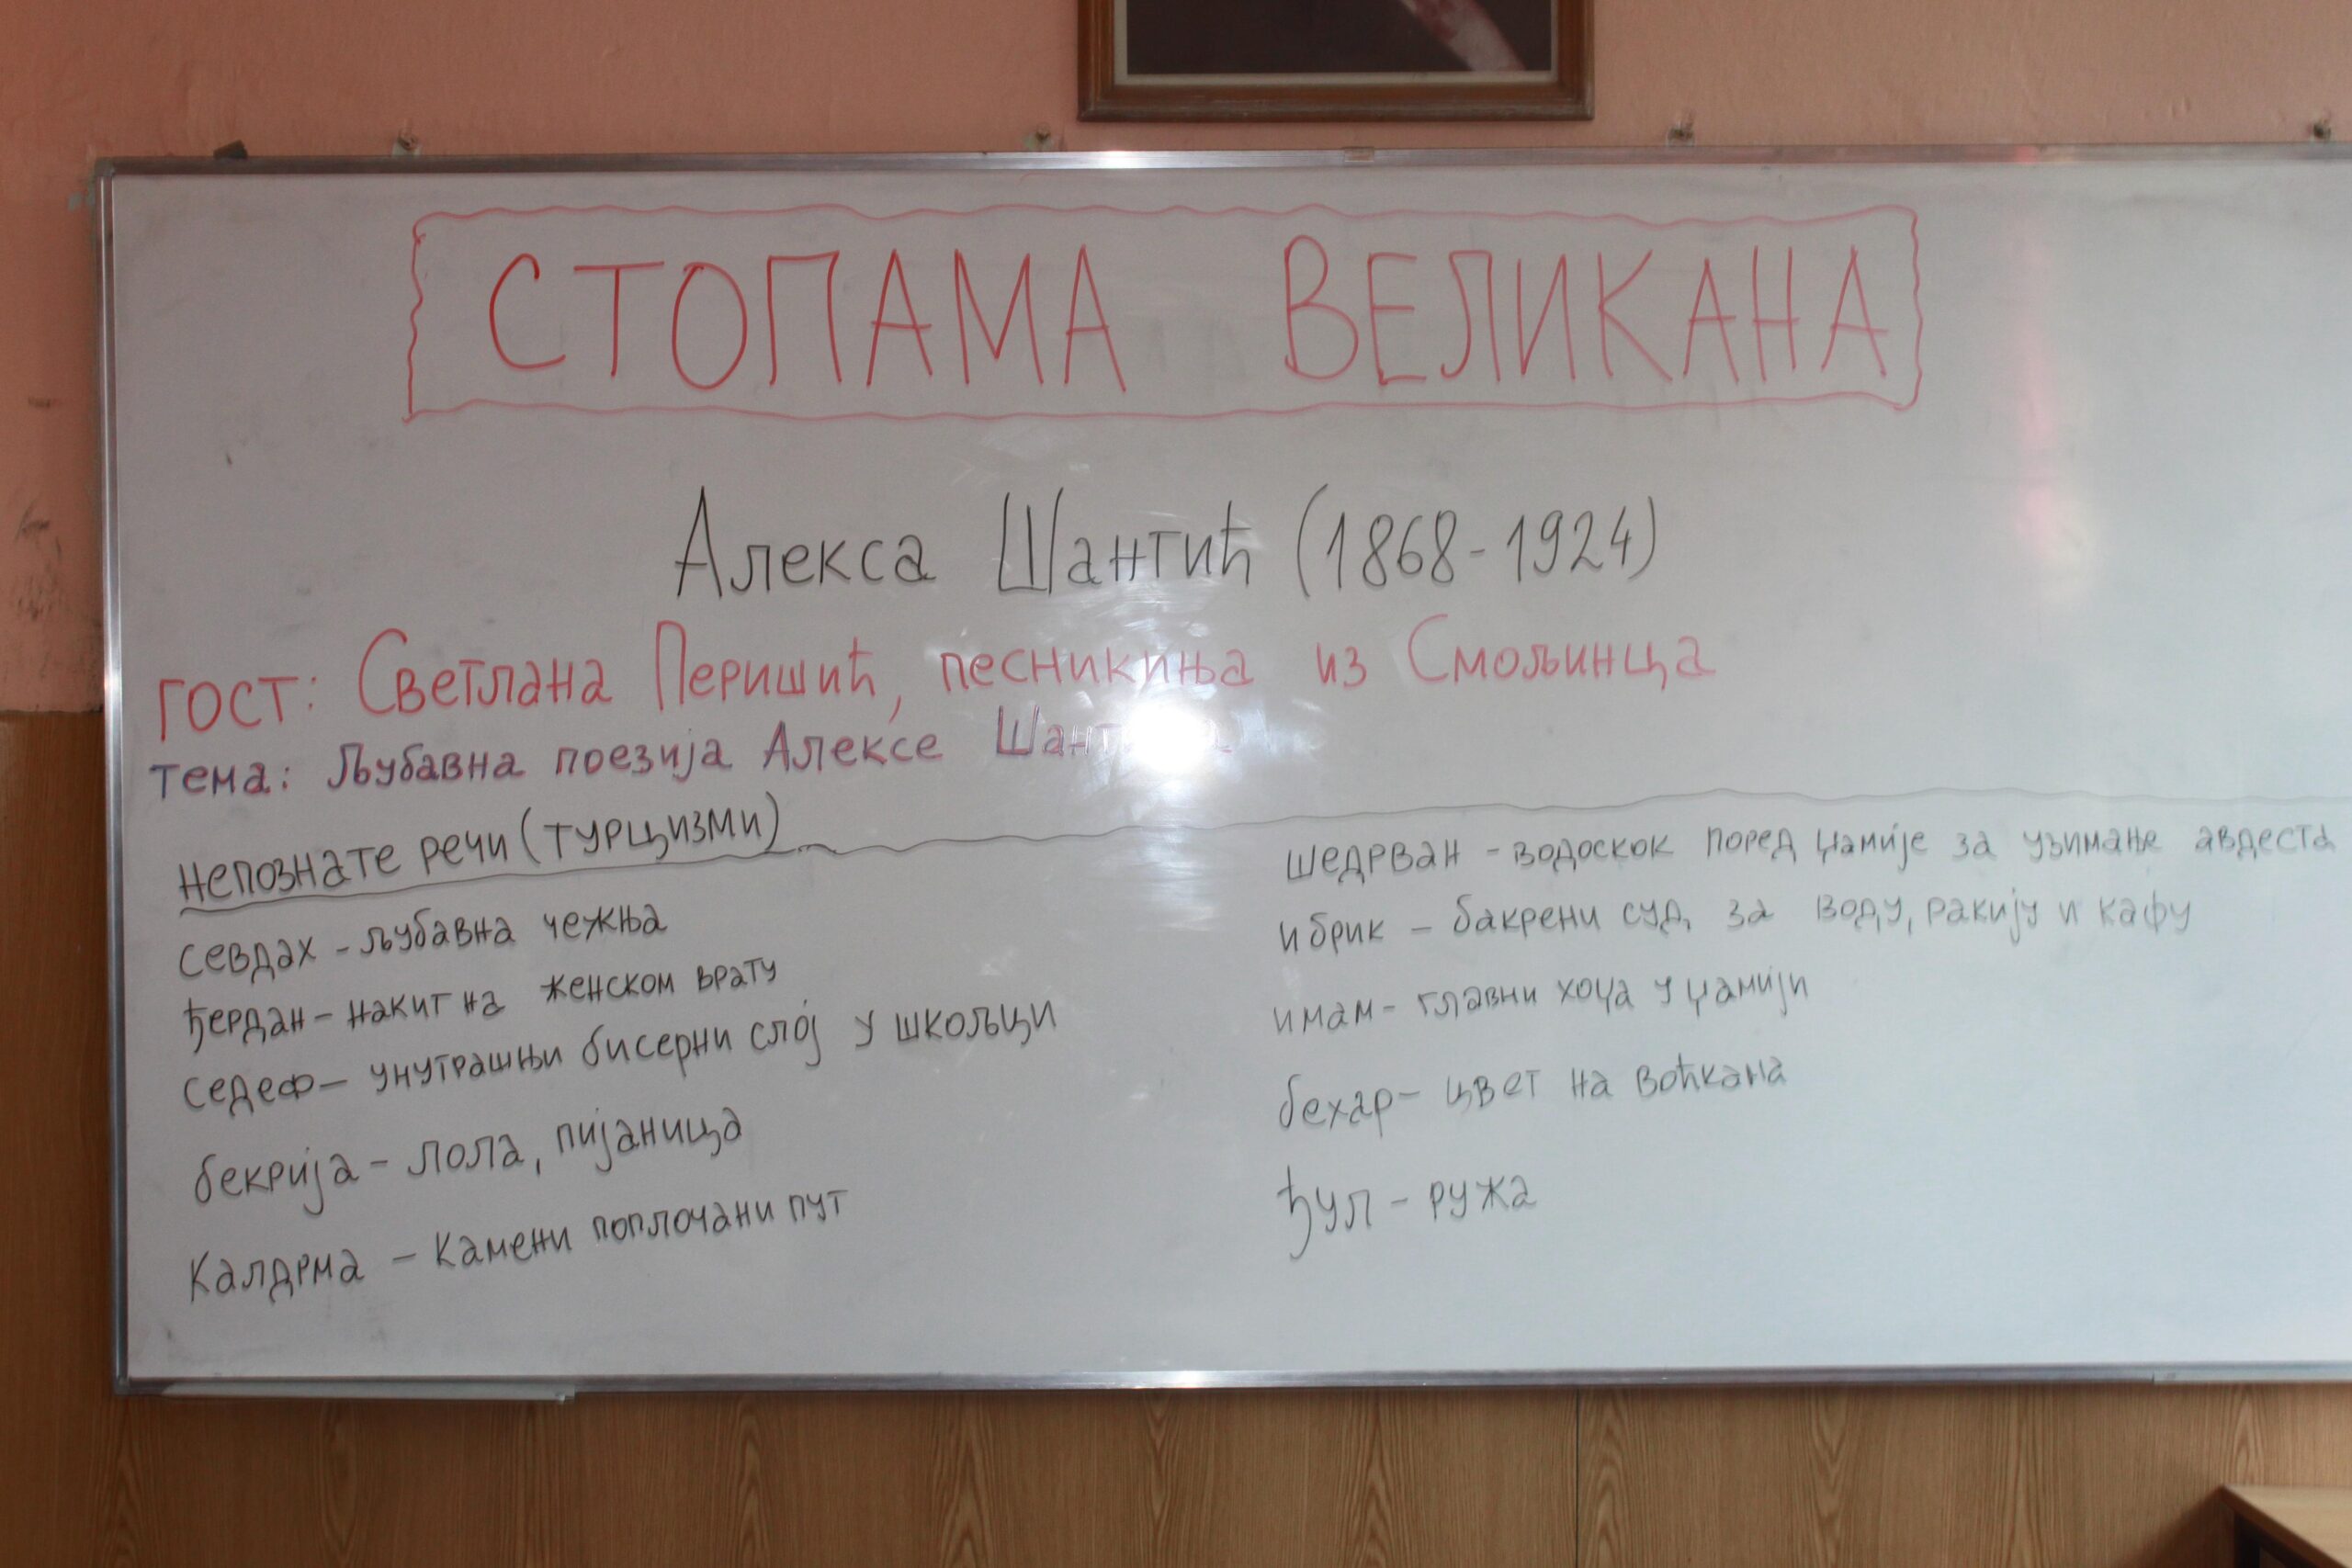 СТОПАМА ВЕЛИКАНА
Алекса Шантић (1868-1924)
гост: Светлана Перишић, песникиња из Смољинца
тема: Љубавна поезија Алексе
непознате речи (турцизми)
севдах - љубавна чежња
ђердан - накит на женском врату
седеф - унутрашњи бисерни слој у шкољци
бекрија - лола, пијаница
Калдрма - камени поплочани пут
шедрван - водоскок поред џамије за узимање авдеста
ибрик - бакрени суд за воду, ракију и кафу
имам - главни хоџа у џамији
бехар - цвет на воћкана
ђул - ружа